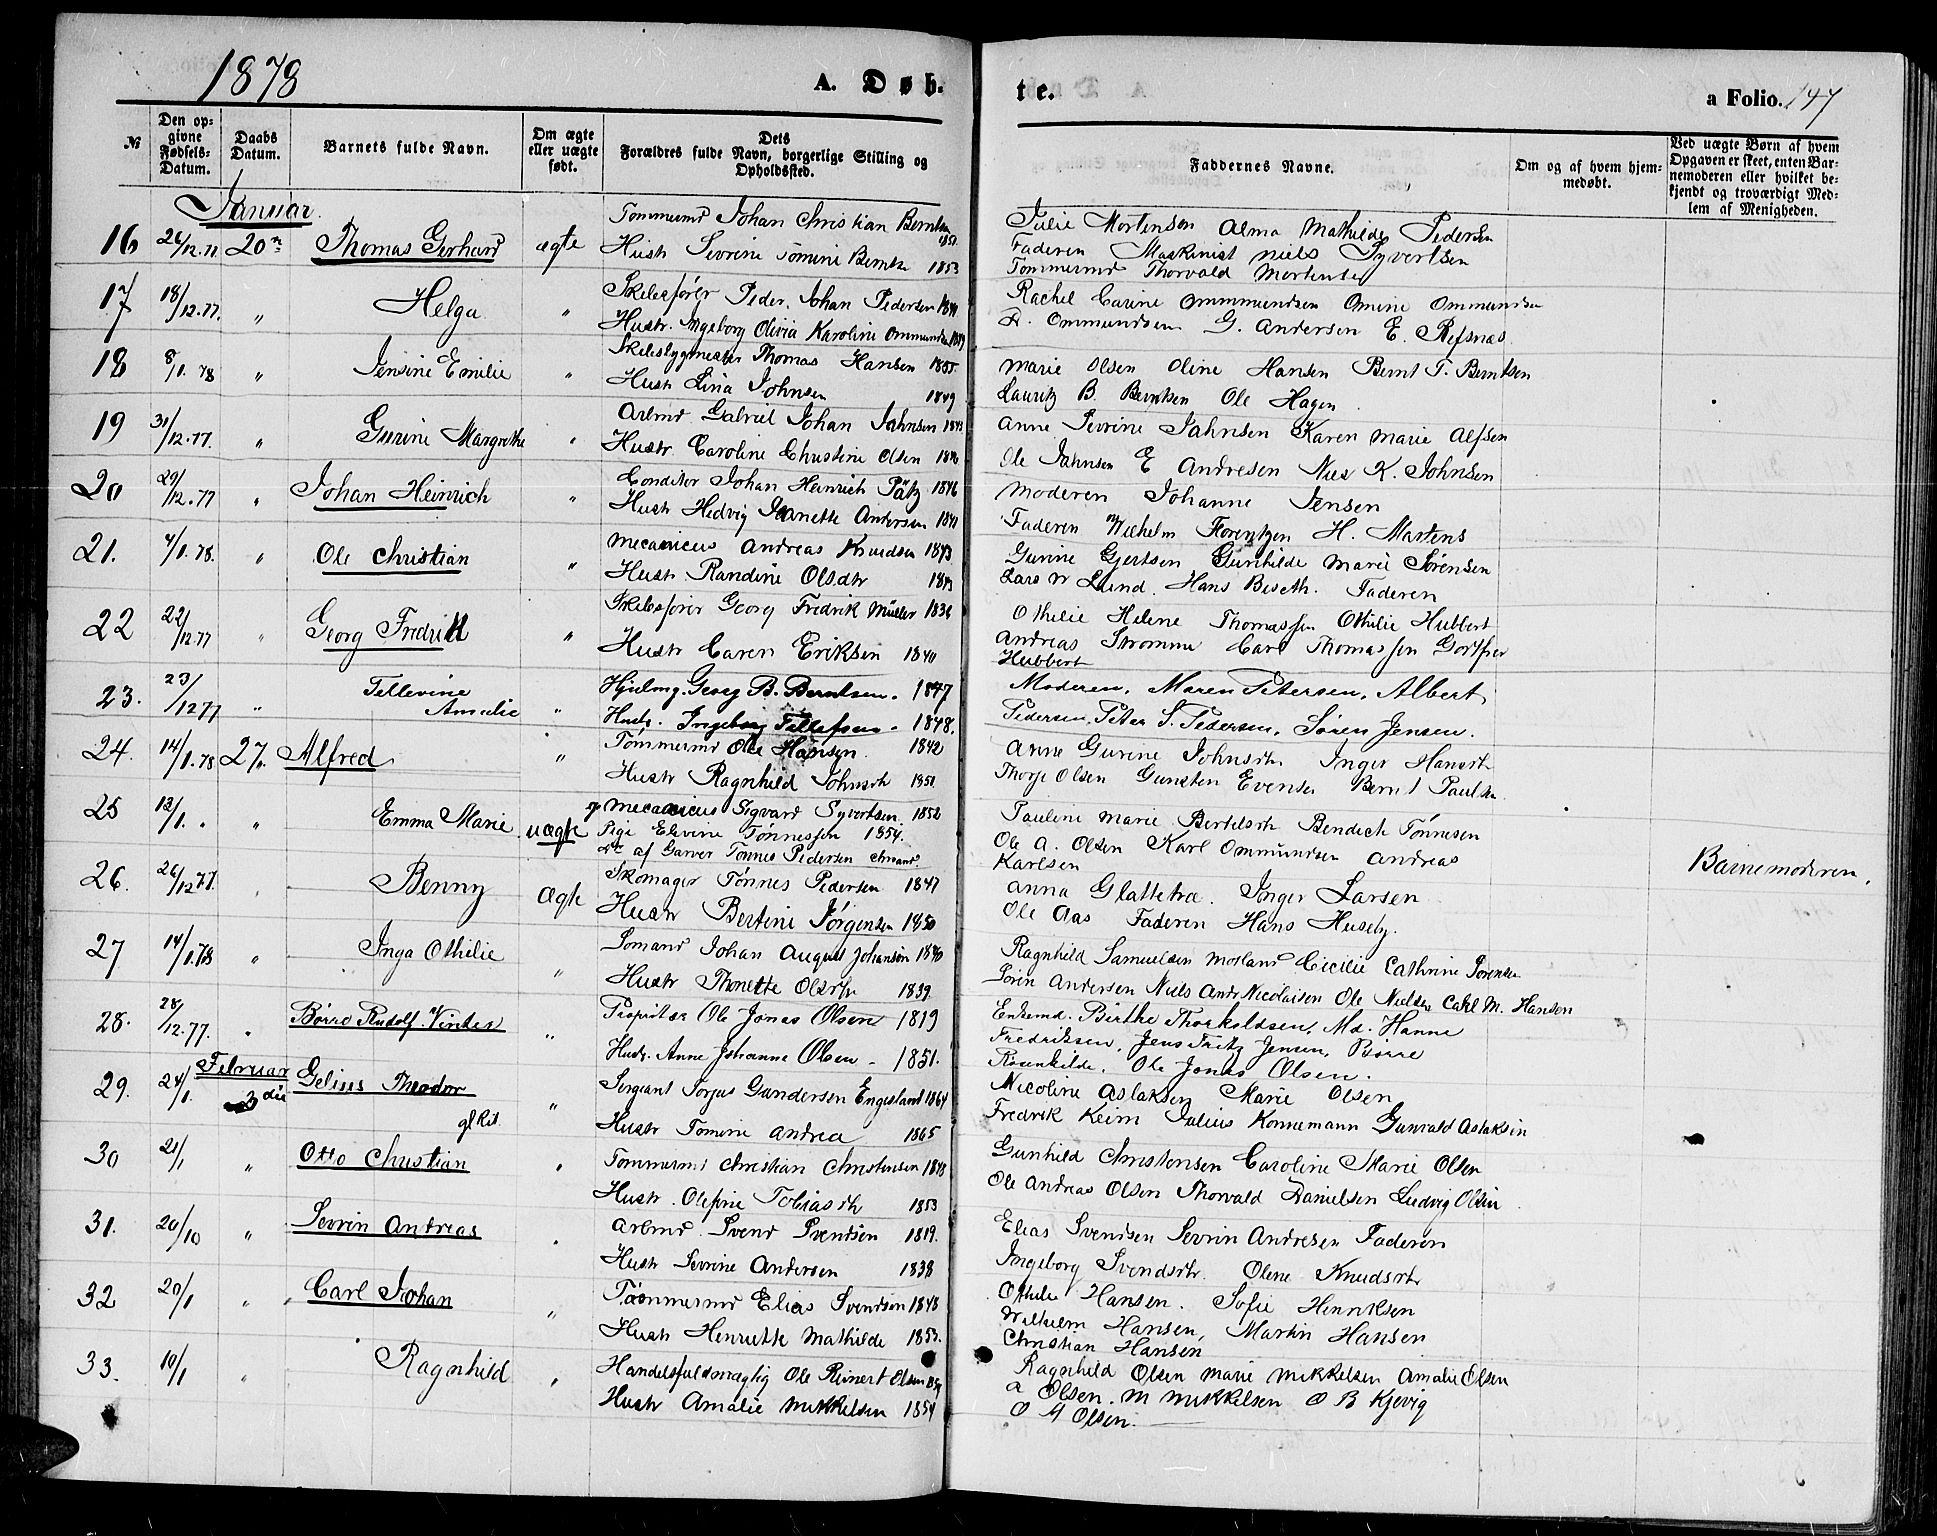 1878
A. Døb-
te.
a Folio. 147
№
Den op-
givne
Fødsels-
Datum.
Daabs
Datum.
Barnets fulde Navn.
Om ægte
eller uægte
født.
Dets
Forældres fulde Navn, borgerlige Stilling og
Opholdssted.
Faddernes Navne.
Om og af hvem hjem-
medøbt.
Ved uægte Børn af hvem
Opgaven er skeet, enten Bar-
nemoderen eller hvilket be-
kjendt og troværdigt Med-
lem af Menigheden.
Januar
16 26/12.77 20de Thomas Gerhard ægte Tømmermd Johan Christian Berntsen 1851
Hustr Sevrine Tomine Berntsen 1853
Julie Mortensen Alma Mathilde Pedersen
Faderen Maskinist Niels Syvertsen
Tømmermd Thorvald Mortensen
17 18/12.77. " Helga " Skibsfører Peder Johan Pedersen
Hustr. Ingeborg Olivia Karoline Ommundsen
Rachel Carine Ommundsen Omine Ommundsen
Ommundsen G. Andersen E. Refsnæs
18 8/1.78 " Jensine Emilie " Skibsbygmester Thomas Hansen 1855
Hustr Lina Johnsen 1849
Marie Olsen Oline Hansen Bernt T. Berntsen
Lauritz B. Berntsen Ole Hagen
19 31/12.77. " Gurine Margrethe " Arbmd Gabriel Johan Jahnsen 1843
Hustr Caroline Christine Olsen 1846
Anne Sevrine Jahnsen Karen Marie Alfsen
Ole Jahnsen E Andresen Niels K. Johnsen
20 29/12.77 " Johan Heinrich " Conditor Johan Heinrich Pätz 1846
Hustr Hedvig Jeanette Andersen 1841
Moderen Johanne Jensen
Faderen Wilhelm Florentzen H. Martens
21. 4/1.78. " Ole Christian " Mecanicus Andreas Knudsen 1843
Hustr Randine Olsdtr
Gurine Gjertsen Gunhilde Marie Sørensen
Lars W Lund. Hans Beseth. Faderen
22 22/12.77 " Georg Fredrik " Skibsfører Georg Fredrik Müller 1836
Hustr Caren Eriksen 1840
Othilie Helene Thomassen Othilie Hubbert
Andreas Strømme Carl Thomassen Gotfrer
Hubbert
23. 23/1277 " Tellevine
Amalie " Hjulmg. Georg B. Berntsen. 1847
Hustr. Ingeborg Tellefsen. 1848.
Moderen, Maren Petersen, Albert
Pedersen, Peter S. Pedersen, Søren Jensen.
24. 14/1.78 27. Alfred " Tømmermd Ole Hansen 1842
Hustr Ragnhild Johnsdtr 1851
Anne Gurine Johnsdtr Inger Hansdtr
Thorje Olsen Gunsten Evensen Bernt Paulsen
25 12/1. " " Emma Marie uægte Mecanicus Sigvard Syvertsen 1852
Pige Elevine Tønnessen 1854.
Dtr af Garver Tønnes Pedersen
Pauline Marie Bertelsdtr Bendich Tønnesen
Ole A. Olsen Karl Ommundsen Andreas
Karlsen
Barnemoderen.
26. 26/1277. " Benny Ægte Skomager Tønnes Pedersen 1847
Hustr Bertine Jørgensen 1850
Anna Glattetra. Inger Larsen
Ole Aas Faderen Hans Huseby.
27 14/1.78 " Inga Othilie " Sømand Johan August Johansen 1840
Hustr Thonette Olsdtr 1839
Ragnhild Samuelsen Mosland Cicilie Cathrine Sørensen
Søren Andersen Niels Andr Nicolaisen Ole Nielsen Carl M. Hansen
28. 28/12.77. " Børre Rudolf Winter " Proprietær Ole Jonas Olsen 1819
Hustr. Anne Johanne Olsen - 1851.
Enkemd. Birthe Thorkoldsen, Md. Hanne
Fredriksen, Jens Fritz Jensen, Børre
Rosenkilde, Ole Jonas Olsen.
Februar
29. 24/1. 3die Gelius Theodor
" Sergeant Torjus Gundersen Engesland 1864
Hustr Tomine Andrea 1865
Nicoline Aslaksen Marie Olsen
Fredrik Keim Julius Konnemann Gunvald Aslaksen
30 21/1 " Otto Christian " Tømmermd Christian Christensen 1848
Hustr. Olefine Tobiasdtr 1853
Gunhild Christensen Caroline Marie Olsen
Ole Andreas Olsen Thorvald Danielsen Ludvig Olsen
31. 20/10 " Sevrin Andreas " Arbmd. Svend Svendsen 1819.
Hustr Sevrine Andersen 1838
Elias Svendsen Sevrin Andresen Faderen
Ingeborg Svendsdtr. Olene Knudsdtr
32 20/1 " Carl Johan " Tømmermd Elias Svendsen 1848
Hustr Henriette Mathilde 1853.
Othilie Hansen. Sofie Henriksen
Wilhelm Hansen, Martin Hansen
Christian Hansen
33. 10/1 " Ragnhild " Handelsfuldmægtig Ole Reinert Olsen
Hustr Amalie Mikkelsen 1854
Ragnhild Olsen Marie Mikkelsen Amalie Olsen
A Olsen. M Mikkelsen O B Kjevig
O M Olsen.